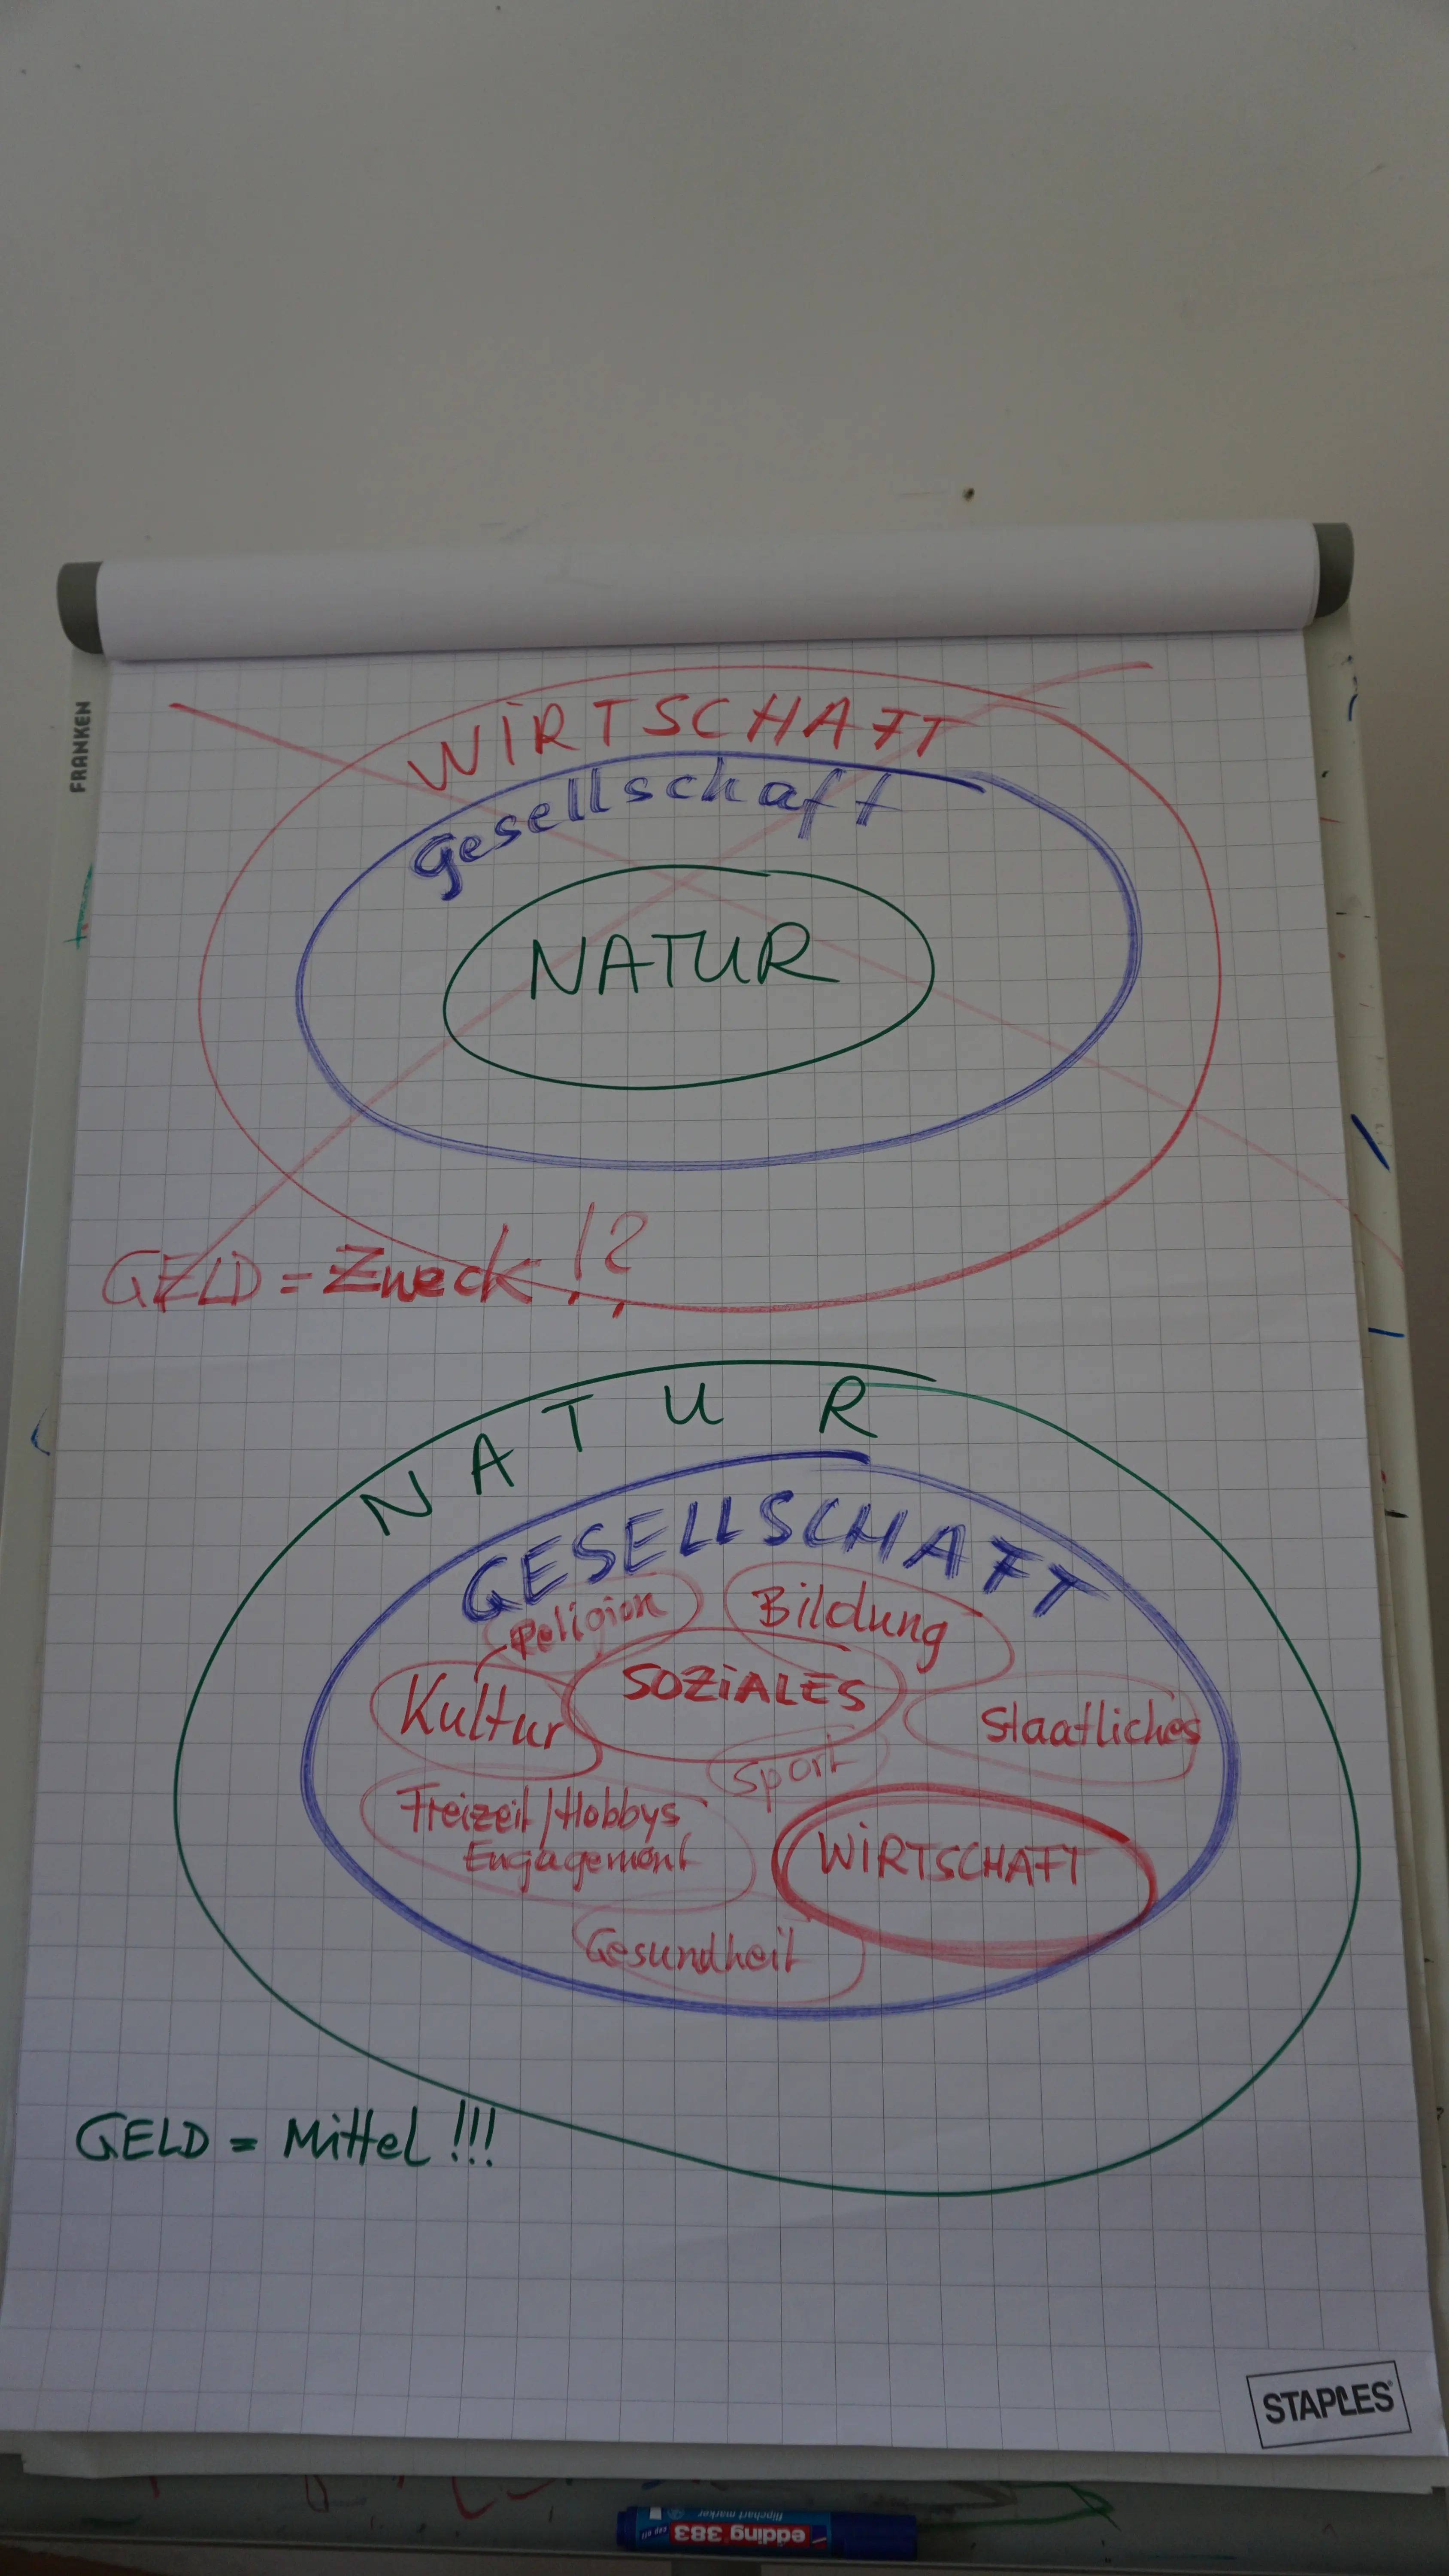 FRANKEN
WiRTSCHAFT
Gesellschaft
NATUR
GELD = Zweck !?
NATUR
GESELLSCHAFT
Religion
Bildung
SOZiALES
Kultur
Staatliches
Sport
Freizeit/Hobbys
Engagement
WiRTSCHAFT
Gesundheit
GELD = Mittel !!!
STAPLES
edding 383
flipchart marker
cap off